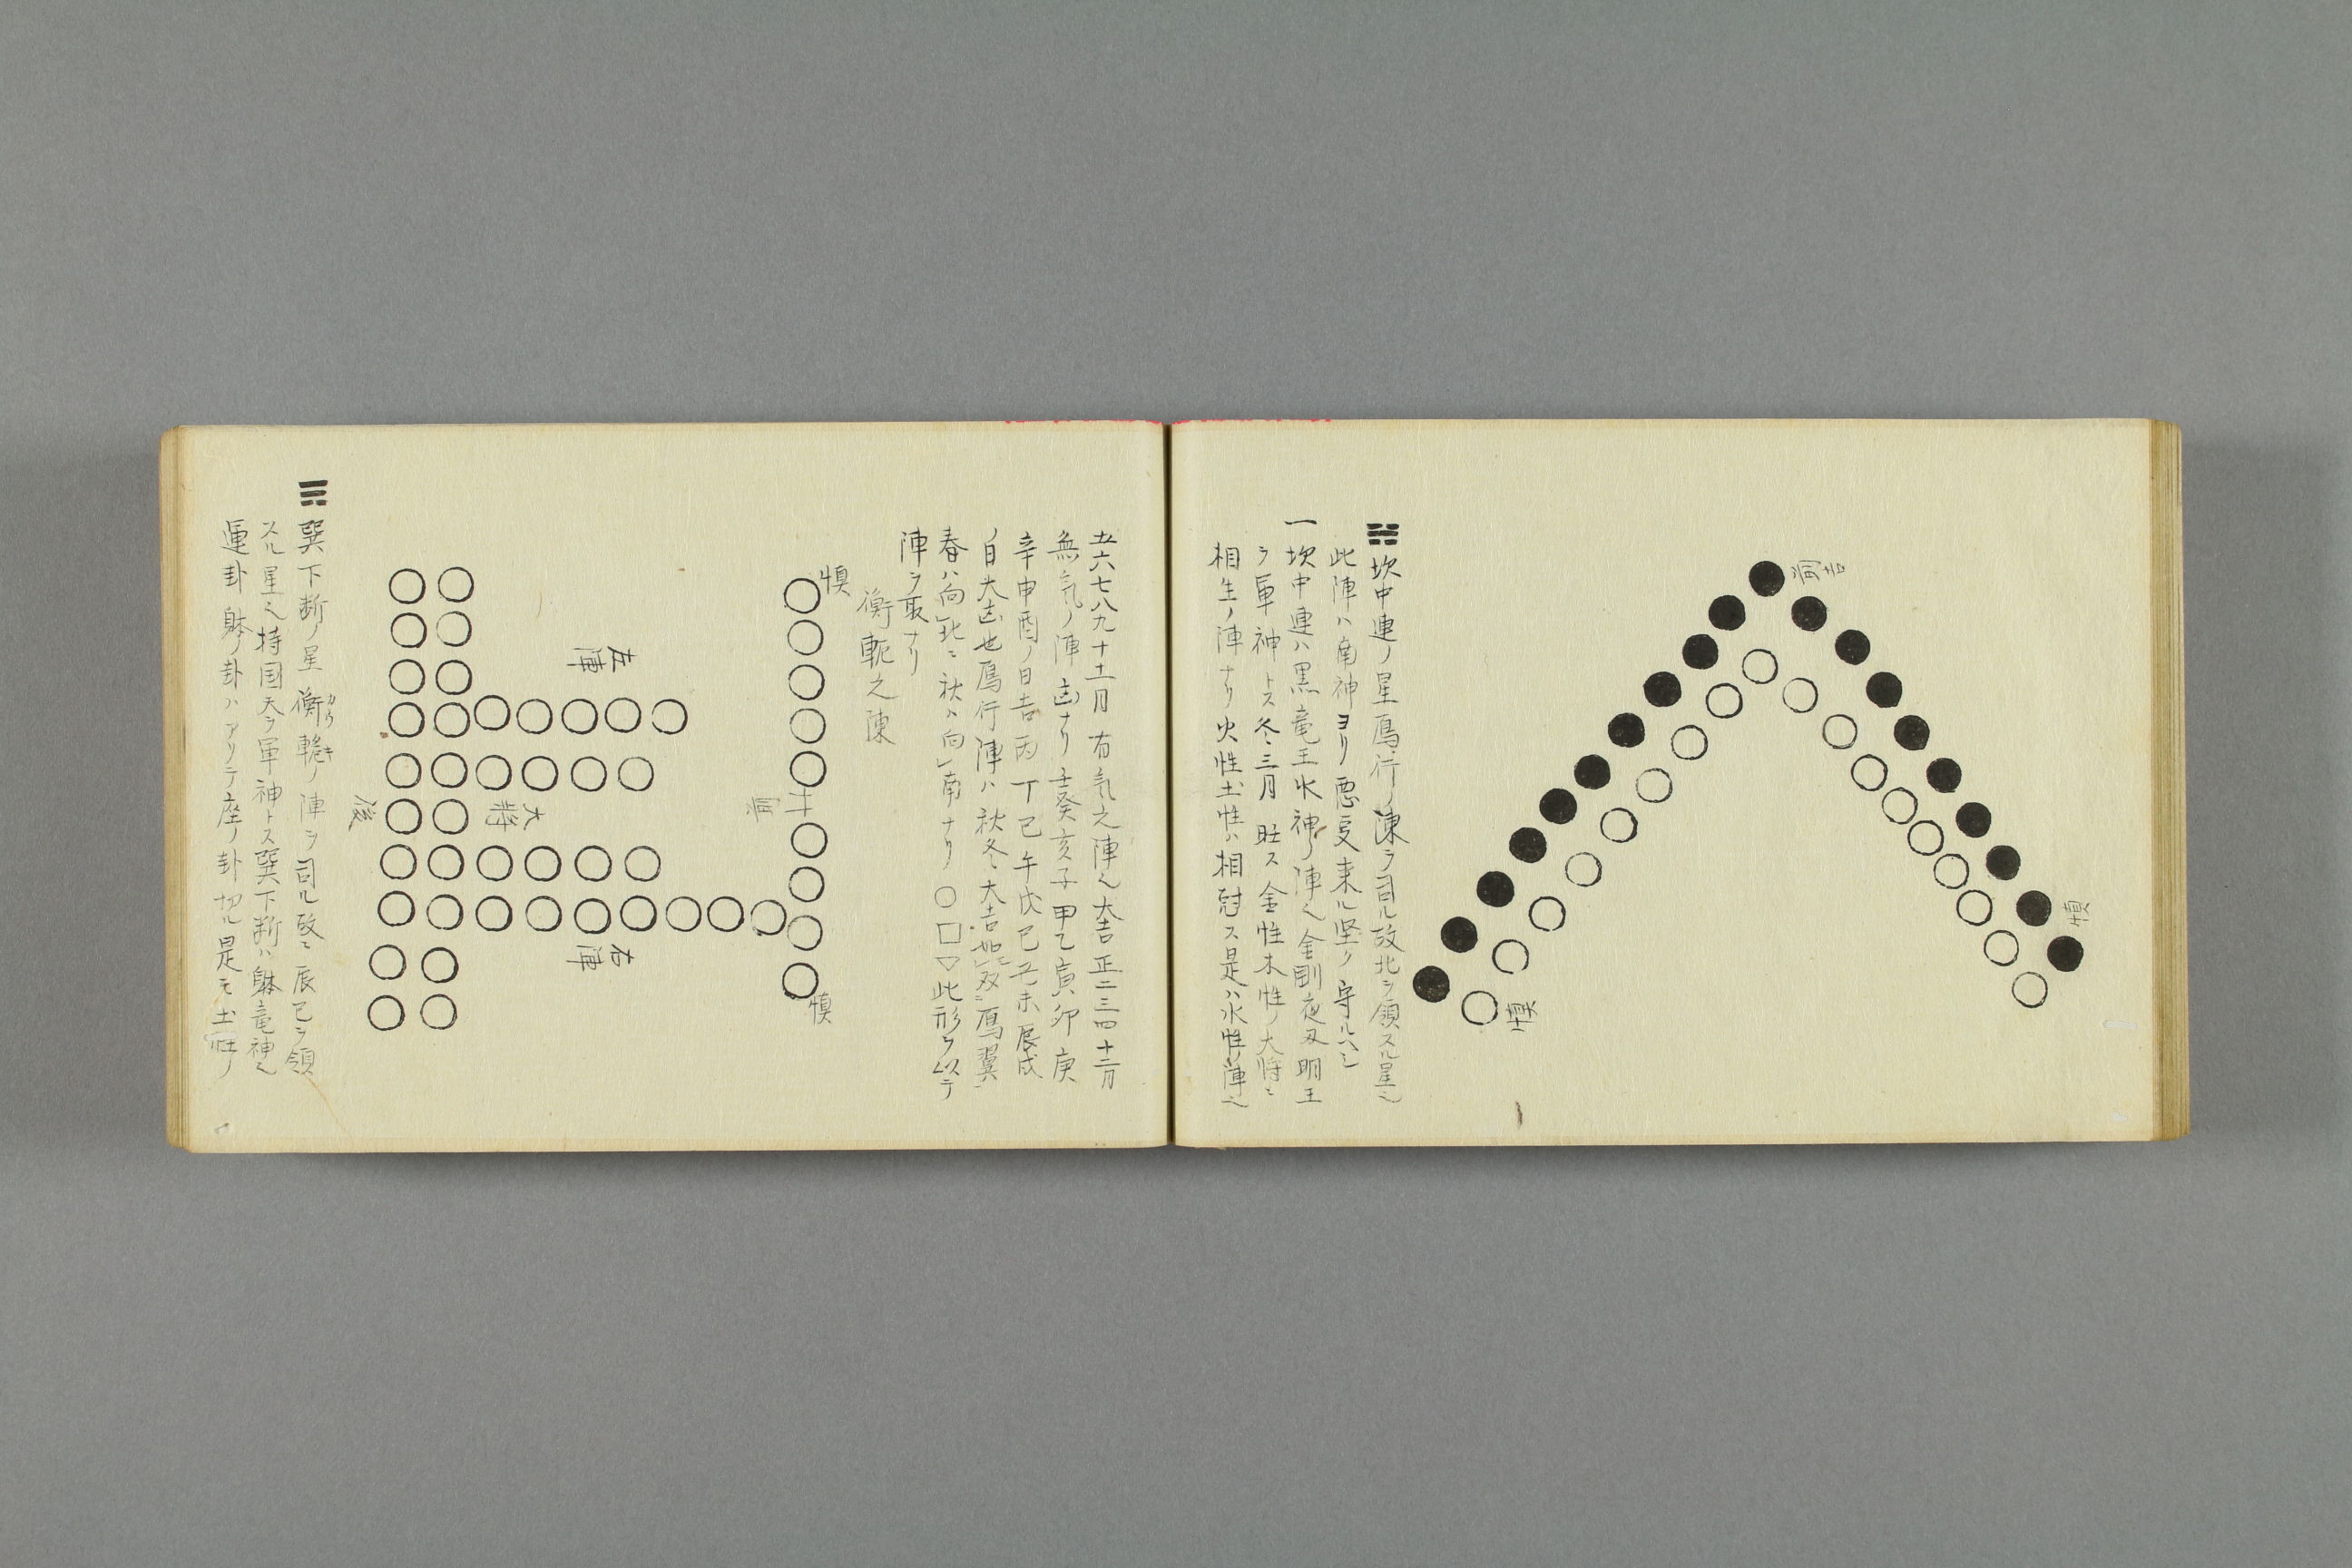 前吉
慎
慎
☵ 坎中連ノ星鴈行ノ陳ヲ司ル故北ヲ領スル星也
此陣ハ南神ヨリ悪受来ル坚ク守ルヘシ
一 坎中連ハ黒竜王水神ノ陣也金剛夜叉明王
ヲ軍神トス冬三月旺ス金性木性ノ大将ニ
相生ノ陣ナリ火性土性ハ相尅ス是ハ水性ノ陣也
五六七八九十十一月有氣之陣也大吉正二三四十二月
無氣ノ陣凶ナリ壬癸亥子甲乙寅卯庚
辛申酉ノ日吉丙丁巳午戊己丑未辰戌
ノ日大凶也鴈行陣ハ秋冬大吉如此双ニ鴈翼
春ハ向北ニ秋ハ向南ナリ○□▽此形ヲ以テ
陣ヲ取ナリ
衡軛之陳
慎
慎
左陣
大将
右陣
後
☴ 巽下断ノ星衡軛ノ陣ヲ司ル故ニ辰巳ヲ領
スル星也持国天ヲ軍神トス巽下断ハ躰竜神也
運卦躰ノ卦ハアリテ座ノ卦切ル是モ土性ノ